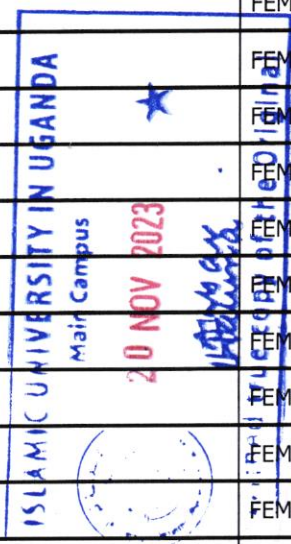 ISLAMIC UNIVERSITY IN UGANDA
Main Campus
20 NOV 2023
true copy of the Original
FEM
FEM
FEM
FEM
FEM
FEM
FEM
FEM
FEM
FEM